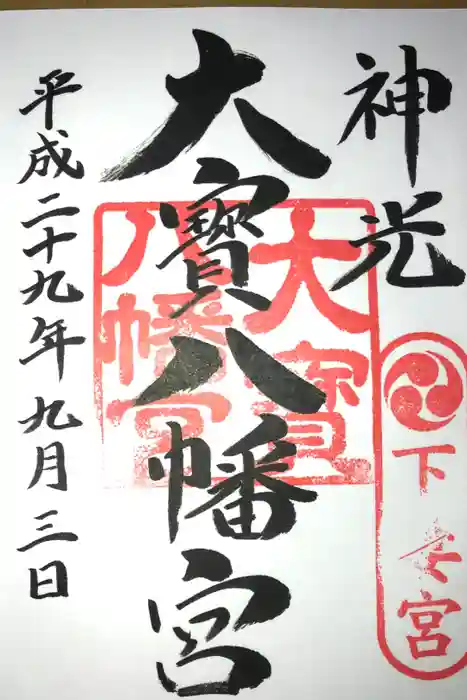 神光
下妻宮
大寶八幡宮
大寶
八幡宮
平成二十九年九月三日